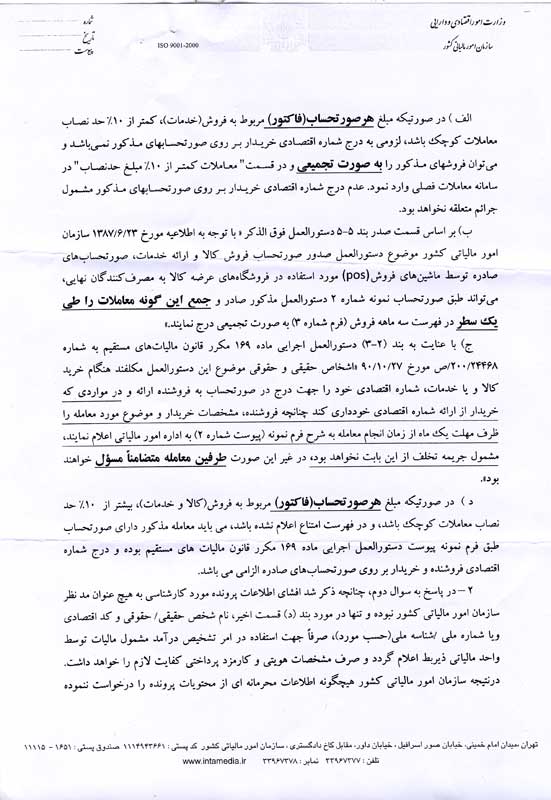 وزارت امور اقتصادی و دارایی
سازمان امور مالیاتی کشور
شماره
تاریخ
پیوست
ISO 9001-2000
الف ) در صورتیکه مبلغ هرصورتحساب(فاکتور) مربوط به فروش(خدمات)، کمتر از ۱۰٪ حد نصاب
معاملات کوچک باشد، لزومی به درج شماره اقتصادی خریدار بر روی صورتحسابهای مذکور نمی‌باشد و
می‌توان فروشهای مذکور را به صورت تجمیعی و در قسمت" معاملات کمتر از ۱۰٪ مبلغ حدنصاب" در
سامانه معاملات فصلی وارد نمود. عدم درج شماره اقتصادی خریدار بر روی صورتحسابهای مذکور مشمول
جرائم متعلقه نخواهد بود.
ب) بر اساس قسمت صدر بند ۵-۵ دستورالعمل فوق الذکر « با توجه به اطلاعیه مورخ ۱۳۸۷/۶/۲۳ سازمان
امور مالیاتی کشور موضوع دستورالعمل صدور صورتحساب فروش کالا و ارائه خدمات، صورتحساب‌های
صادره توسط ماشین‌های فروش(pos) مورد استفاده در فروشگاه‌های عرضه کالا به مصرف‌کنندگان نهایی،
می‌تواند طبق صورتحساب نمونه شماره ۲ دستورالعمل مذکور صادر و جمع این گونه معاملات را طی
یک سطر در فهرست سه ماهه فروش (فرم شماره ۳) به صورت تجمیعی درج نمایند.»
ج) با عنایت به بند (۲-۳) دستورالعمل اجرایی ماده ۱۶۹ مکرر قانون مالیات‌های مستقیم به شماره
۲۰۰/۲۴۴۶۸/ص مورخ ۹۰/۱۰/۲۷ «اشخاص حقیقی و حقوقی موضوع این دستورالعمل مکلفند هنگام خرید
کالا و یا خدمات، شماره اقتصادی خود را جهت درج در صورتحساب به فروشنده ارائه و در مواردی که
خریدار از ارائه شماره اقتصادی خودداری کند چنانچه فروشنده، مشخصات خریدار و موضوع مورد معامله را
ظرف مهلت یک ماه از زمان انجام معامله به شرح فرم نمونه (پیوست شماره ۲) به اداره امور مالیاتی اعلام نمایند،
مشمول جریمه تخلف از این بابت نخواهد بود، در غیر این صورت طرفین معامله متضامناً مسؤل خواهند
بود».
د ) در صورتیکه مبلغ هرصورتحساب(فاکتور) مربوط به فروش(کالا و خدمات)، بیشتر از ۱۰٪ حد
نصاب معاملات کوچک باشد، و در فهرست امتناع اعلام نشده باشد، می باید معامله مذکور دارای صورتحساب
طبق فرم نمونه پیوست دستورالعمل اجرایی ماده ۱۶۹ مکرر قانون مالیات های مستقیم بوده و درج شماره
اقتصادی فروشنده و خریدار بر روی صورتحساب‌های صادره الزامی می باشد.
۲ – در پاسخ به سوال دوم، چنانچه ذکر شد افشای اطلاعات پرونده مورد کارشناسی به هیچ عنوان مد نظر
سازمان امور مالیاتی کشور نبوده و تنها در مورد بند (د) قسمت اخیر، نام شخص حقیقی/ حقوقی و کد اقتصادی
ویا شماره ملی /شناسه ملی(حسب مورد)، صرفاً جهت استفاده در امر تشخیص درآمد مشمول مالیات توسط
واحد مالیاتی ذیربط اعلام گردد و صرف مشخصات هویتی و کارمزد پرداختی کفایت لازم را خواهد داشت.
درنتیجه سازمان امور مالیاتی کشور هیچگونه اطلاعات محرمانه ای از محتویات پرونده را درخواست ننموده
تهران ،میدان امام خمینی، خیابان صور اسرافیل ، خیابان داور، مقابل کاخ دادگستری ، سازمان امور مالیاتی کشور کد پستی : ۱۱۱۴۹۴۳۶۶۱ صندوق پستی : ۱۶۵۱ – ۱۱۱۱۵
تلفن : ۳۳۹۶۷۳۷۷ نمابر : ۳۳۹۶۷۳۷۸ www.intamedia.ir